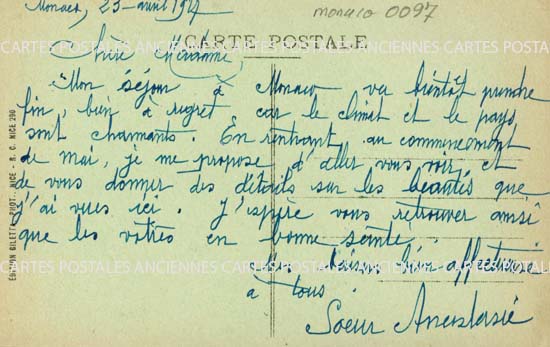 Monaco, 25 avril 1927
monaco 0097
CARTE POSTALE
CARTES POSTALES ANCIENNES CARTES POSTALES ANCIENNES CARTES POSTALES
Chère
Mon séjour à Monaco va bientôt prendre
fin, bien à regret car le climat et le pays
sont charmants. En rentrant au commencement
de mai, je me propose d'aller vous voir et
de vous donner des détails sur les beautés que
j'ai vues ici. J'espère vous retrouver ainsi
que les vôtres en bonne santé.
CARTES POSTALES ANCIENNES CARTES POSTALES ANCIENNES CARTES POSTALES
baisers bien affectueux
à tous.
Soeur Anastasie
EDITION GILETTA - PHOT. NICE - R. C. NICE 290